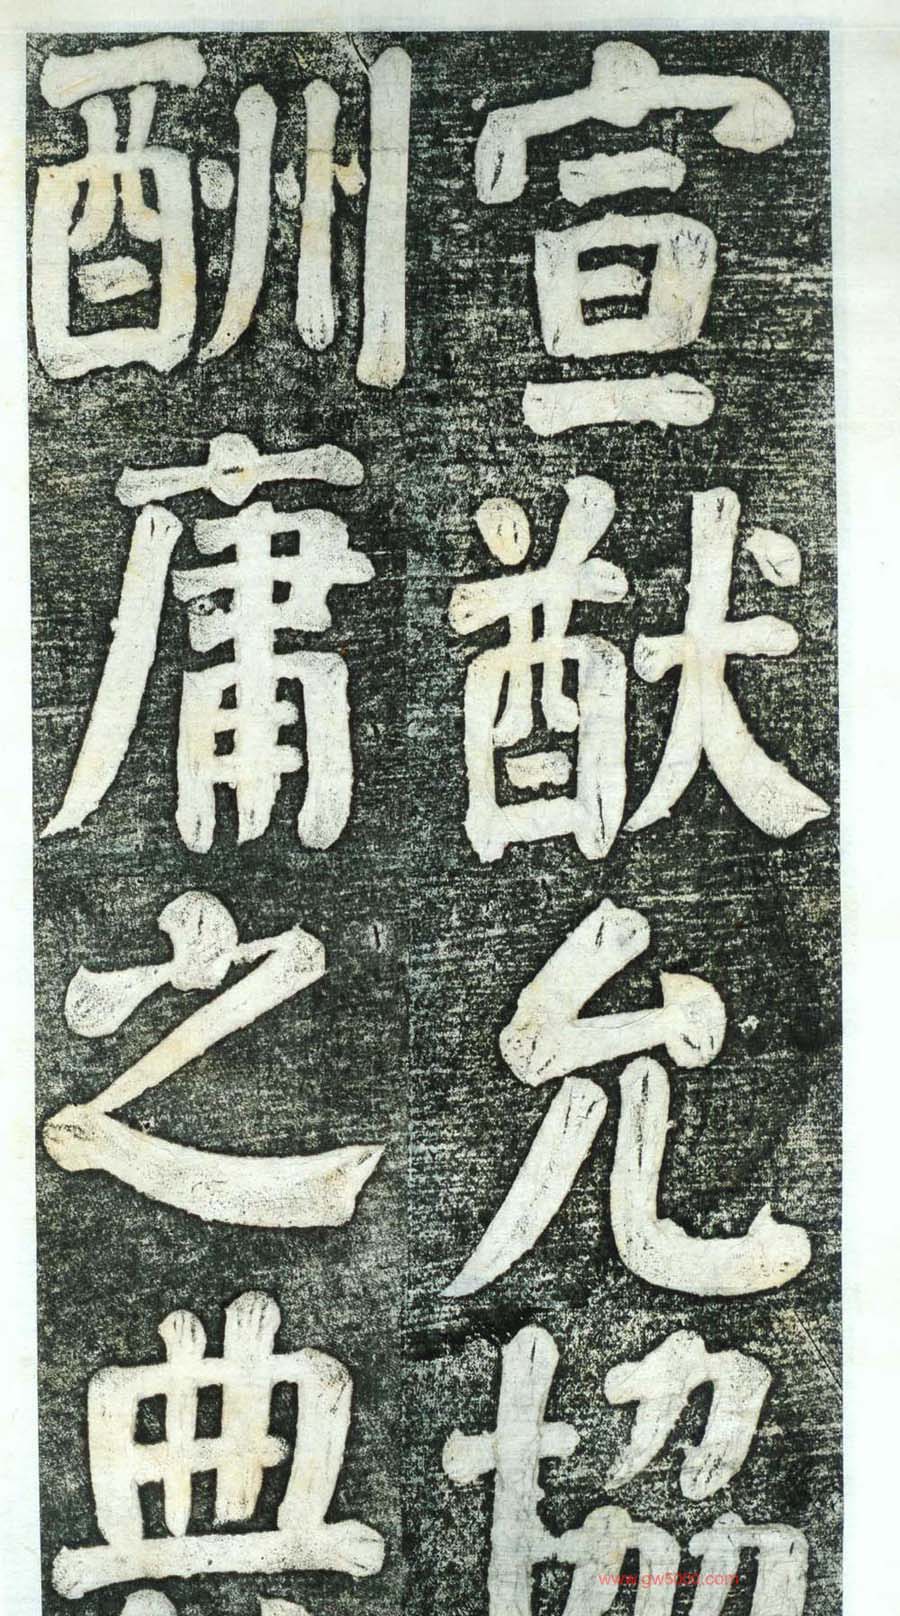 宣猷允協
酬庸之典
www.gw5000.com